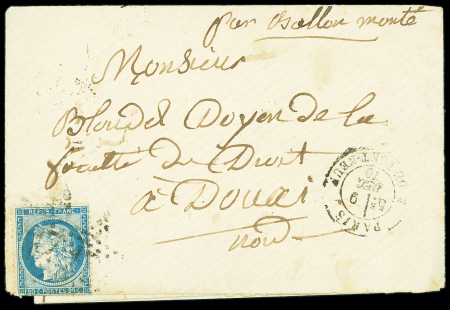 par Ballon monté
Monsieur
Blondel Doyen de la
faculté de Droit
à Douai
Nord
REPUB. FRANC.
20 C POSTES 20 C
PARIS
5E 9
DEC.
70